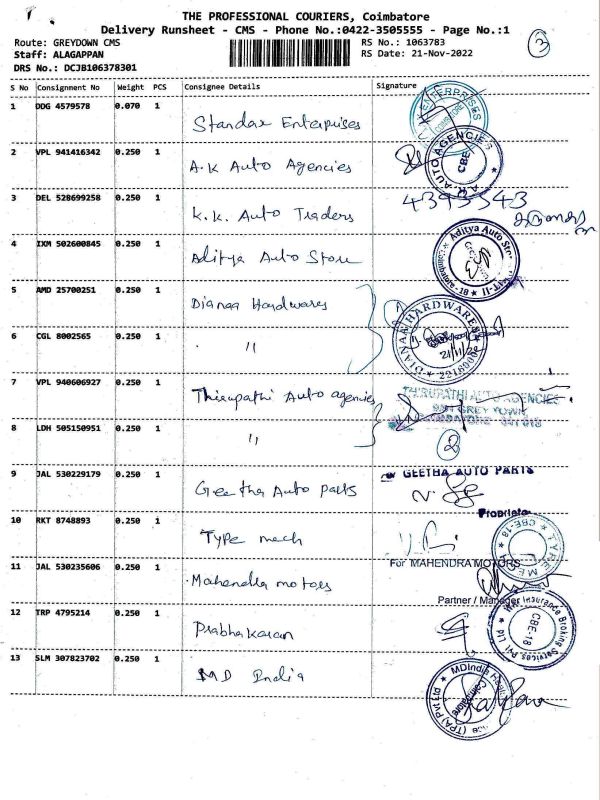 THE PROFESSIONAL COURIERS, Coimbatore
Delivery Runsheet - CMS - Phone No.:0422-3505555 - Page No.:1
Route: GREYDOWN CMS
RS No.: 1063783
3
Staff: ALAGAPPAN
RS Date: 21-Nov-2022
DRS No.: DCJB106378301
S No Consignment No Weight PCS Consignee Details Signature
1 DDG 4579578 0.070 1 Standax Enterprises
ENTERPRISES
2 VPL 941416342 0.250 1 A.K Auto Agencies
A.K. AUTO AGENCIES CBE
3 DEL 528699258 0.250 1 K.K. Auto Traders
4393543
4 IXM 502600845 0.250 1 Aditya Auto Store
Aditya Auto Sto
5 AMD 25700251 0.250 1 Dianaa Hardwares
1
DIANAA HARDWARE
6 CGL 8002565 0.250 1 "
21/11/22
7 VPL 940606927 0.250 1 Thirupathi Auto agencies
THIRUPATHI AUTO AGENCIES
GREY TOWN
8 LDH 505150951 1 "
2
9 JAL 530229179 0.250 1 Geetha Auto parts
GEETHA AUTO PARTS
Proprietor
10 RKT 8748893 0.250 1 Type mech
TYPE MECH CBE-18
11 JAL 530235606 0.250 1 Mahendra motors
For MAHENDRA MOTORS
Partner / Manager
12 TRP 4795214 0.250 1 Prabhakaran
Insurance Broking Services Pvt Ltd CBE-18
13 SLM 307823702 0.250 1 MD India
MDIndia Health (TPA) Pvt Ltd Coimbatore